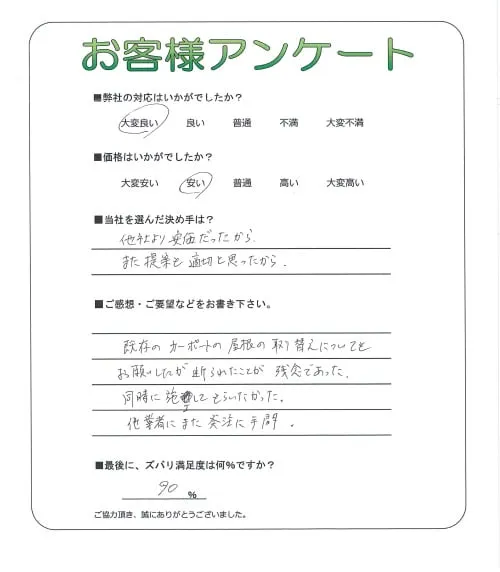 お客様アンケート
■弊社の対応はいかがでしたか?
大変良い 良い 普通 不満 大変不満
■価格はいかがでしたか?
大変安い 安い 普通 高い 大変高い
■当社を選んだ決め手は?
他社より安価だったから.
また提案も適切と思ったから.
■ご感想・ご要望などをお書き下さい。
既存のカーポートの屋根の取り替えについても
お願いしたが断られたことが残念であった.
同時に施工してもらいたかった.
他業者にまた発注に手間.
■最後に、ズバリ満足度は何%ですか?
90 %
ご協力頂き、誠にありがとうございました。